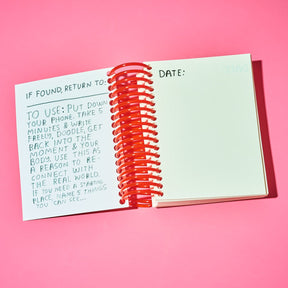 IF FOUND, RETURN TO:
TO USE: PUT DOWN
YOUR PHONE. TAKE 5
MINUTES & WRITE
FREELY, DOODLE, GET
BACK INTO THE
MOMENT & YOUR
BODY. USE THIS AS
A REASON TO RE-
CONNECT WITH
THE REAL WORLD.
IF YOU NEED A STARTING
PLACE, NAME 5 THINGS
YOU CAN SEE...
DATE: